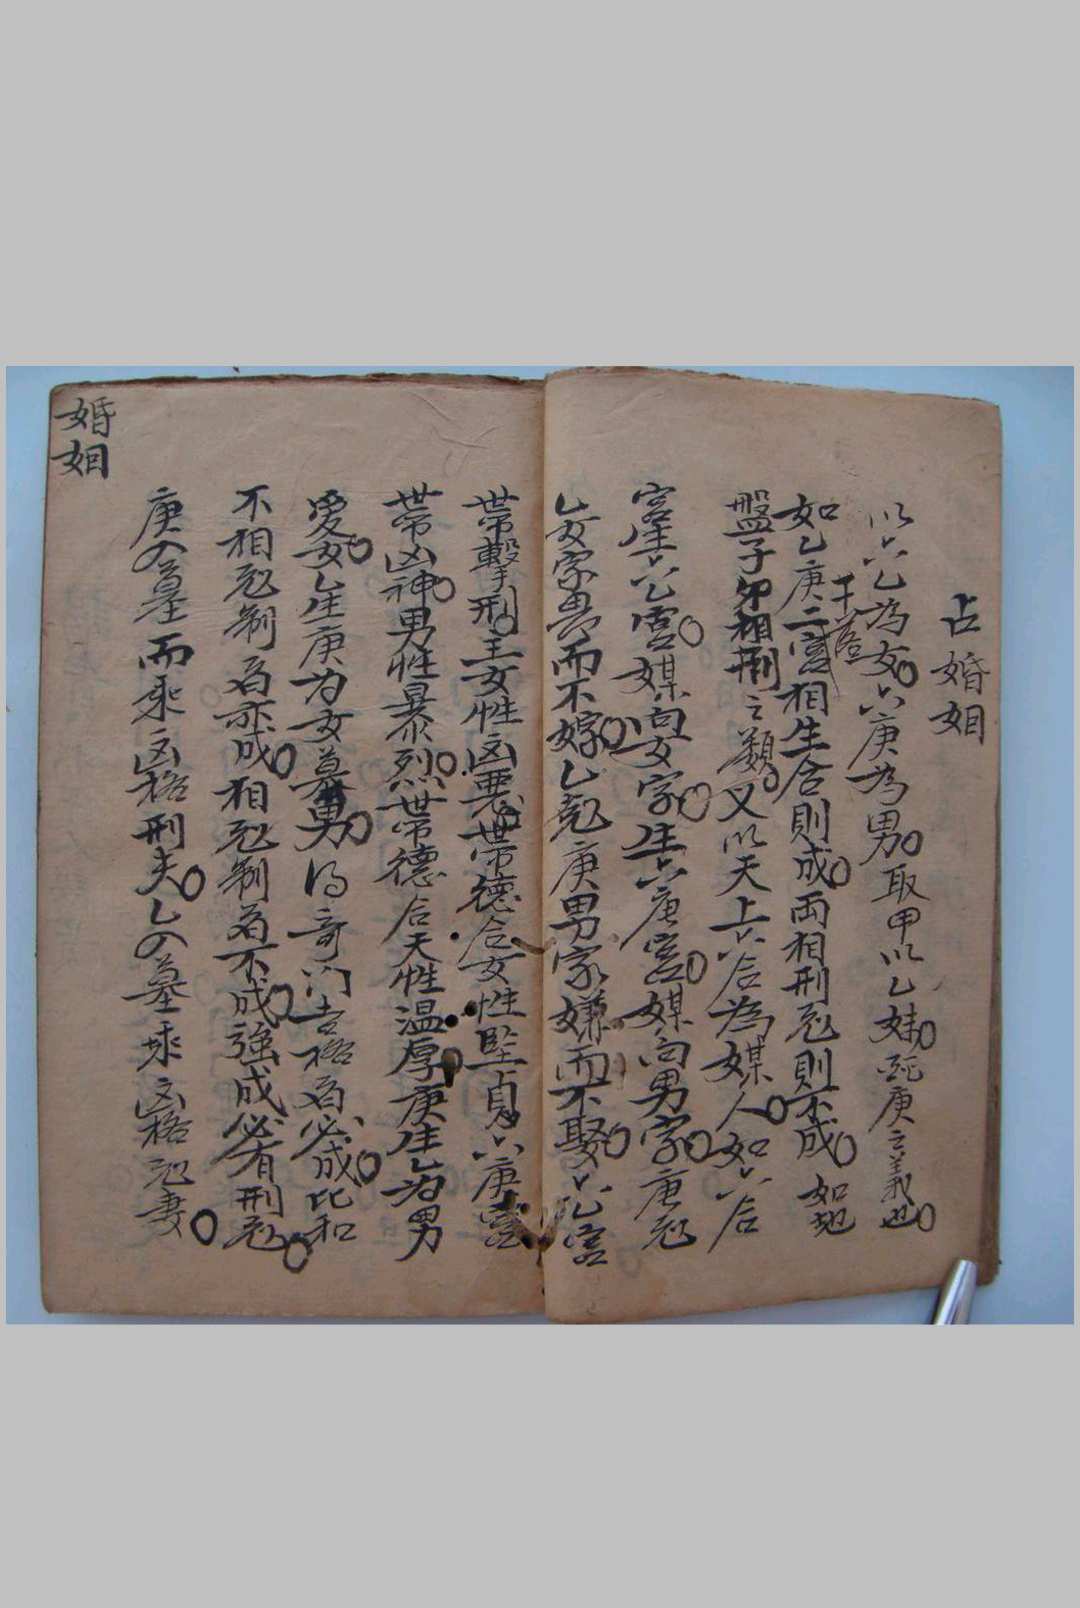 占婚姻
以六乙為女六庚為男取甲以乙妹配庚之義也
如乙庚二宮相生合則成両相刑尅則不成如地
干落
盤子卯相刑之類又以天上六合為媒人如六合
宮生六乙宮媒向女家生六庚宮媒向男家庚尅
乙女家畏而不嫁乙尅庚男家嫌而不娶六乙宮
帯擊刑主女性凶悪帯德合女性堅貞六庚宮
帯凶神男性暴烈帯德合天性温厚庚生乙为男
愛女乙生庚为女慕男得奇门吉格者必成比和
不相尅制者亦成相尅制者不成強成必有刑尅
庚入墓而乘凶格刑夫乙入墓乘凶格尅妻
婚姻